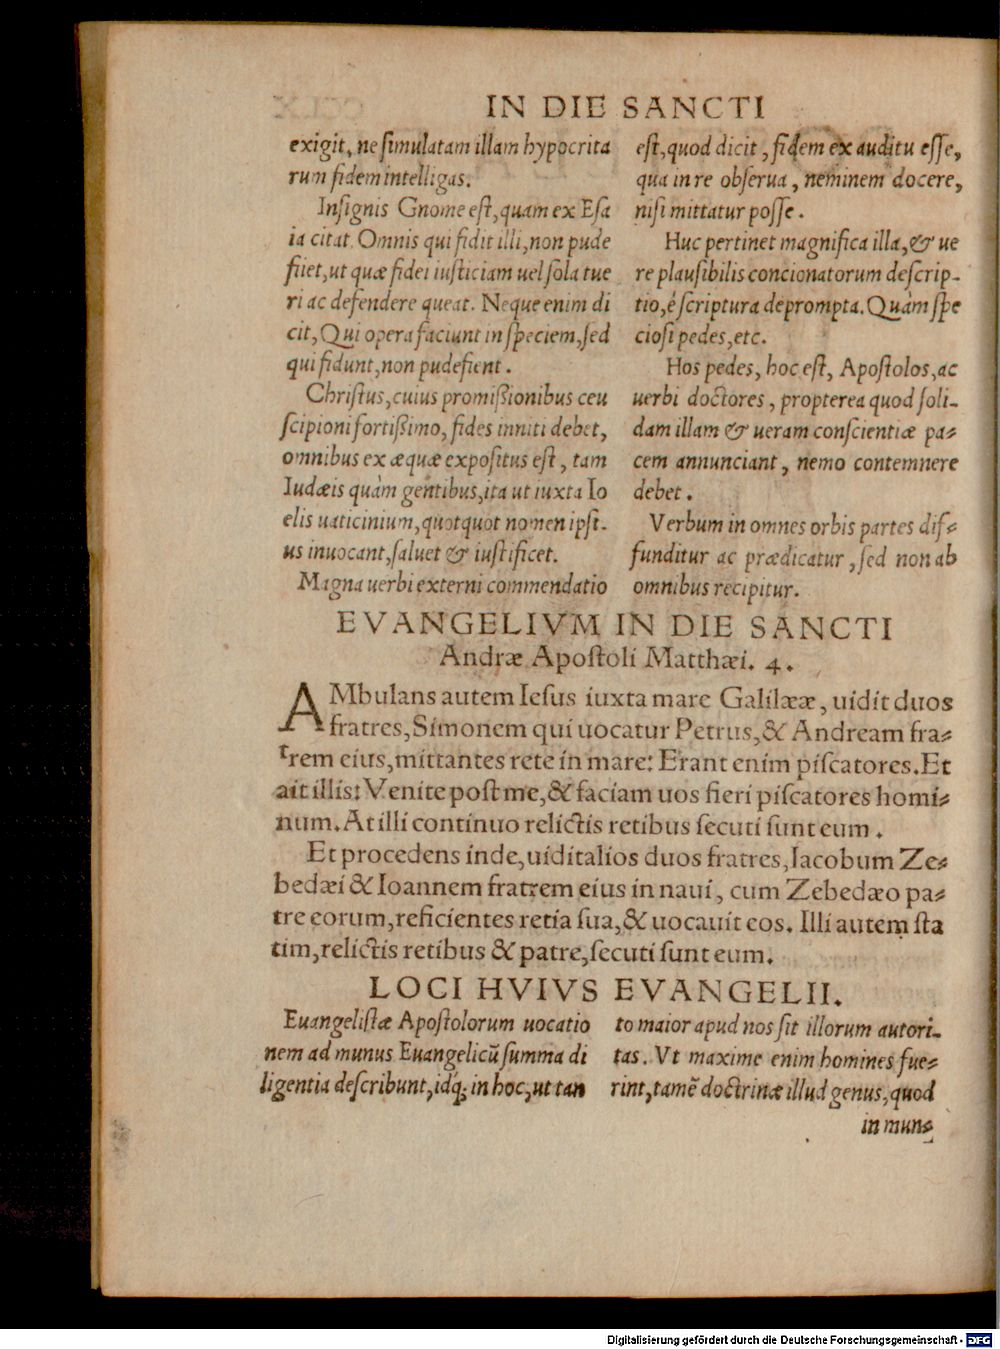 IN DIE SANCTI
exigit, ne ſimulatam illam hypocrita
rum fidem intelligas.
Inſignis Gnome eſt, quam ex Eſa
ia citat. Omnis qui fidit illi, non pude
fiiet, ut quæ fidei iuſticiam uel ſola tue
ri ac defendere queat. Neque enim di
cit, Qui opera faciunt in ſpeciem, ſed
qui fidunt, non pudefient.
Chriſtus, cuius promiſſionibus ceu
ſcipioni fortiſſimo, fides inniti debet,
omnibus ex æquæ expoſitus eſt, tam
Iudæis quàm gentibus, ita ut iuxta Io
elis uaticinium, quotquot nomen ipſi-
us inuocant, ſaluet & iuſtificet.
Magna uerbi externi commendatio
eſt, quod dicit, fidem ex auditu eſſe,
qua in re obſerua, neminem docere,
niſi mittatur poſſe.
Huc pertinet magnifica illa, & ue
re plauſibilis concionatorum deſcrip-
tio, è ſcriptura deprompta. Quàm ſpe
cioſi pedes, etc.
Hos pedes, hoc eſt, Apoſtolos, ac
uerbi doctores, propterea quod ſoli-
dam illam & ueram conſcientiæ pa-
cem annunciant, nemo contemnere
debet.
Verbum in omnes orbis partes dif-
funditur ac prædicatur, ſed non ab
omnibus recipitur.
EVANGELIVM IN DIE SANCTI
Andræ Apoſtoli Matthæi. 4.
AMbulans autem Ieſus iuxta mare Galilææ, uidit duos
fratres, Simonem qui uocatur Petrus, & Andream fra-
trem eius, mittantes rete in mare: Erant enim piſcatores. Et
ait illis: Venite poſt me, & faciam uos fieri piſcatores homi-
num. At illi continuo relictis retibus ſecuti ſunt eum.
Et procedens inde, uidit alios duos fratres, Iacobum Ze-
bedæi & Ioannem fratrem eius in naui, cum Zebedæo pa-
tre eorum, reficientes retia ſua, & uocauit eos. Illi autem ſta
tim, relictis retibus & patre, ſecuti ſunt eum.
LOCI HVIVS EVANGELII.
Euangeliſtæ Apoſtolorum uocatio
nem ad munus Euangelicũ ſumma di
ligentia deſcribunt, idq́; in hoc, ut tan
to maior apud nos ſit illorum autori-
tas. Vt maxime enim homines fue-
rint, tamẽ doctrinæ illud genus, quod
in mun-
Digitalisierung gefördert durch die Deutsche Forschungsgemeinschaft - DFG